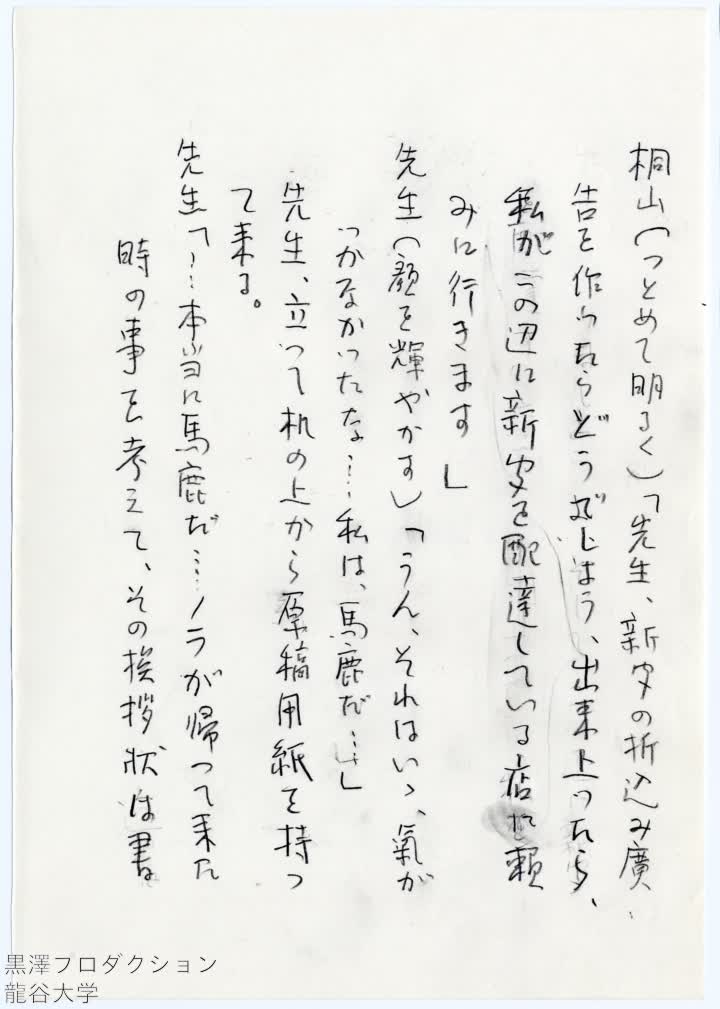 桐山(つとめて明るく)「先生、新聞の折込み廣
告を作ったらどうでしょう、出来上ったら、
私がこの辺に新聞を配達している店に頼
みに行きます」
先生(顔を輝やかす)「うん、それはいゝ、氣が
つかなかったな……私は、馬鹿だ……」
先生、立って机の上から原稿用紙を持っ
て来る。
先生「……本当に馬鹿だ……ノラが帰って来た
時の事を考えて、その挨拶状は書
黒澤プロダクション
龍谷大学